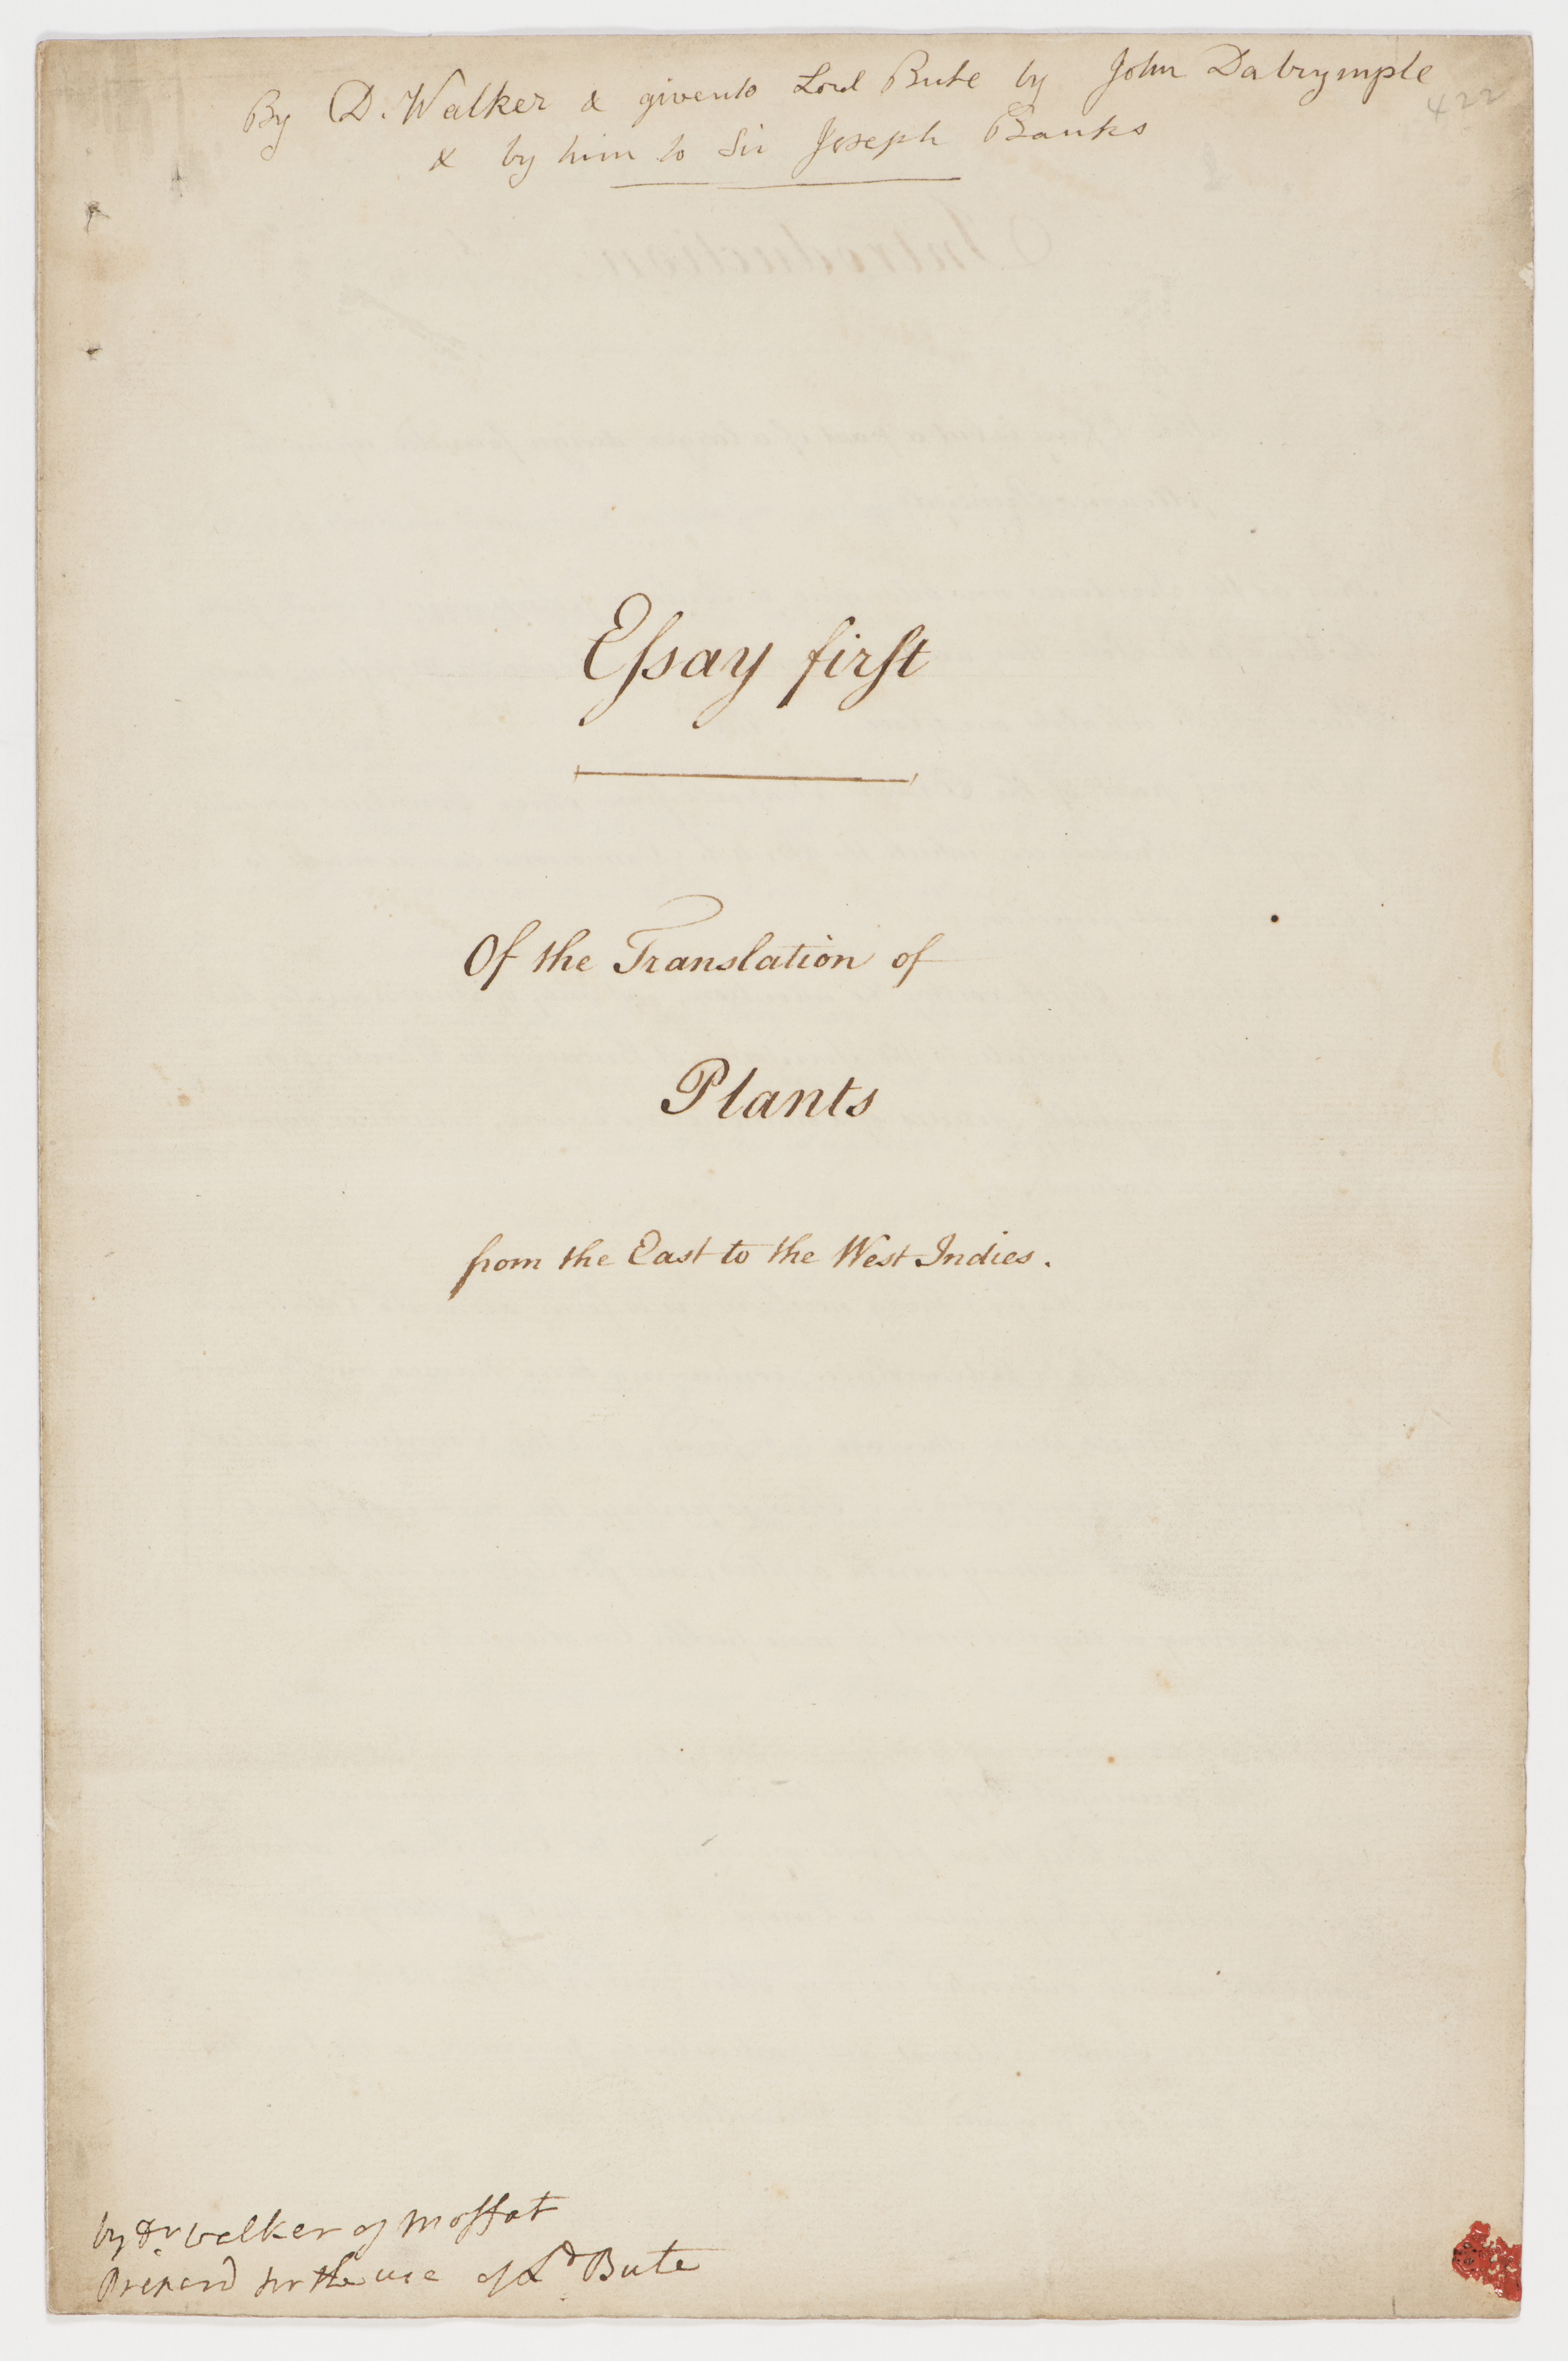 By D. Walker & given to Lord Bute by John Dalrymple
422
& by him to Sir Joseph Banks
Eſsay firſt
Of the Translation of
Plants
from the East to the West Indies.
by Dr. walker of Moffat
Prepard for the use of Ld Bute